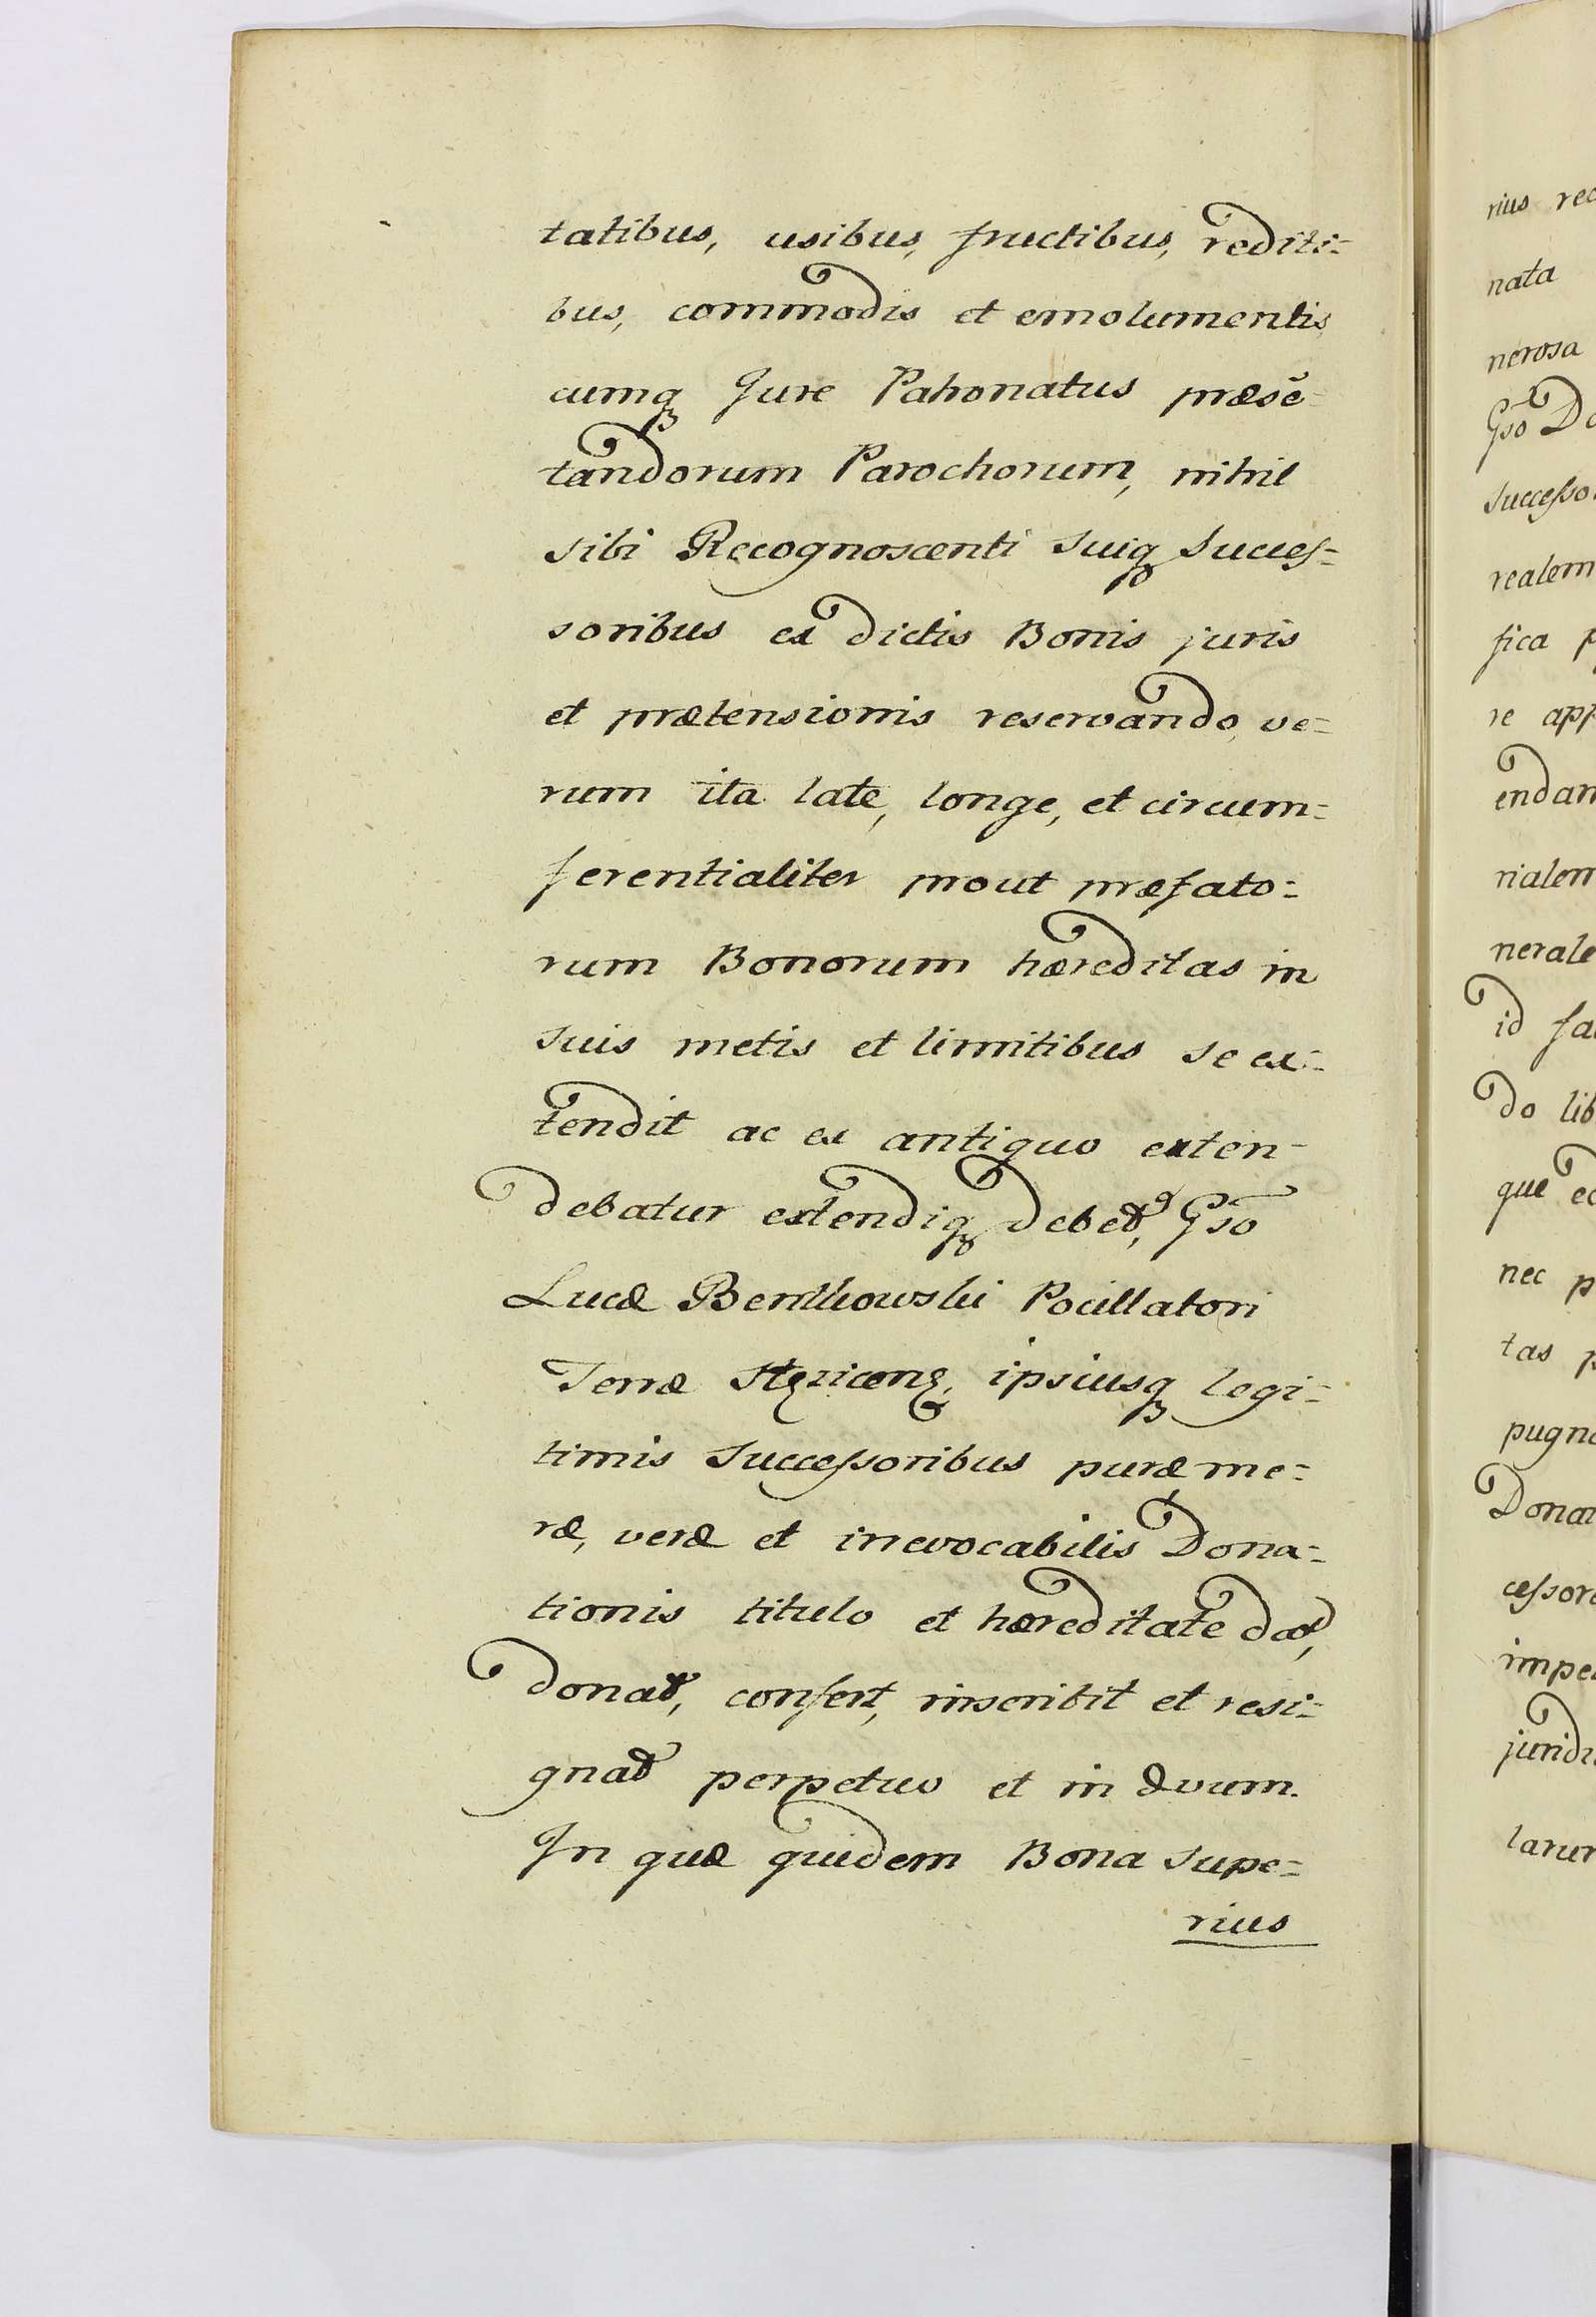 tatibus, usibus, fructibus, rediti=
bus, commodis et emolumentis
cumq Jure Patronatus præsẽ=
tandorum Parochorum, nihil
sibi Recognoscenti suiq Succes=
soribus ex dictis Bonis juris
et prætensionis reservando, ve=
rum ita late, longe, et circum=
ferentialiter prout præfato=
rum Bonorum hæreditas in
suis metis et limitibus se ex=
tendit ac ex antiquo exten=
debatur extendiq debet, Gso
Lucæ Bentkowski Pocillatori
Terræ ipsiusq legi=
timis Successoribus puræ me=
ræ, veræ et irrevocabilis Dona=
tionis titulo et hæreditate dat,
donat, confert, inscribit et resi=
gnat perpetuo et in ævum.
In quæ quidem Bona supe=
rius
rius rec
nata
nerosa
Gso Do
Successo
realem
fica p
re app
endam
rialem
nerale
id fa
do lib
que ec
nec p
tas p
pugna
Dona
cessor
impe
juridi
larum